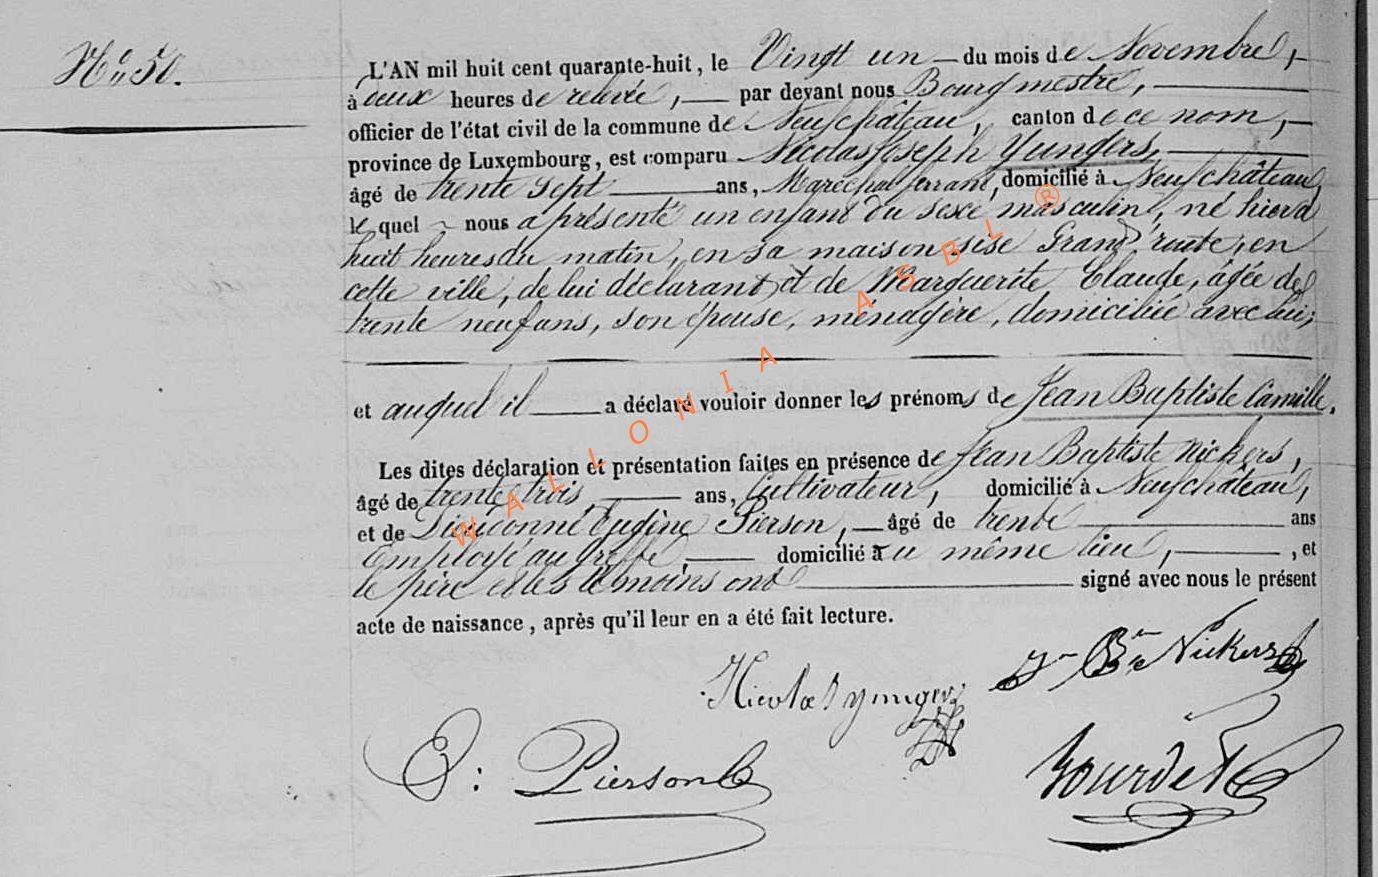 N° 50.
L'AN mil huit cent quarante-huit, le Vingt un du mois de Novembre,
à deux heures de relevée, par devant nous Bourgmestre,
officier de l'état civil de la commune de Neufchâteau, canton de ce nom,
province de Luxembourg, est comparu Nicolas Joseph Yungers,
âgé de trente sept ans, Maréchal ferrant, domicilié à Neufchâteau
le quel nous a présenté un enfant du sexe masculin, né hier à
huit heures du matin, en sa maison sise Grand'route, en
cette ville, de lui déclarant et de Marguerite Claude, âgée de
trente neuf ans, son épouse, ménagère, domiciliée avec lui,
et auquel il a déclaré vouloir donner les prénoms de Jean Baptiste Camille.
Les dites déclaration et présentation faites en présence de Jean Baptiste Nickers,
âgé de trente trois ans, Cultivateur, domicilié à Neufchâteau,
et de Dieudonné Eugène Pierson, âgé de trente ans
Employé au greffe, domicilié au même lieu, , et
le père et les témoins ont signé avec nous le présent
acte de naissance, après qu'il leur en a été fait lecture.
Jn Bte Nickers
Nicolas yunger
E. Pierson
Gourdet
WALLONIA ASBL ®